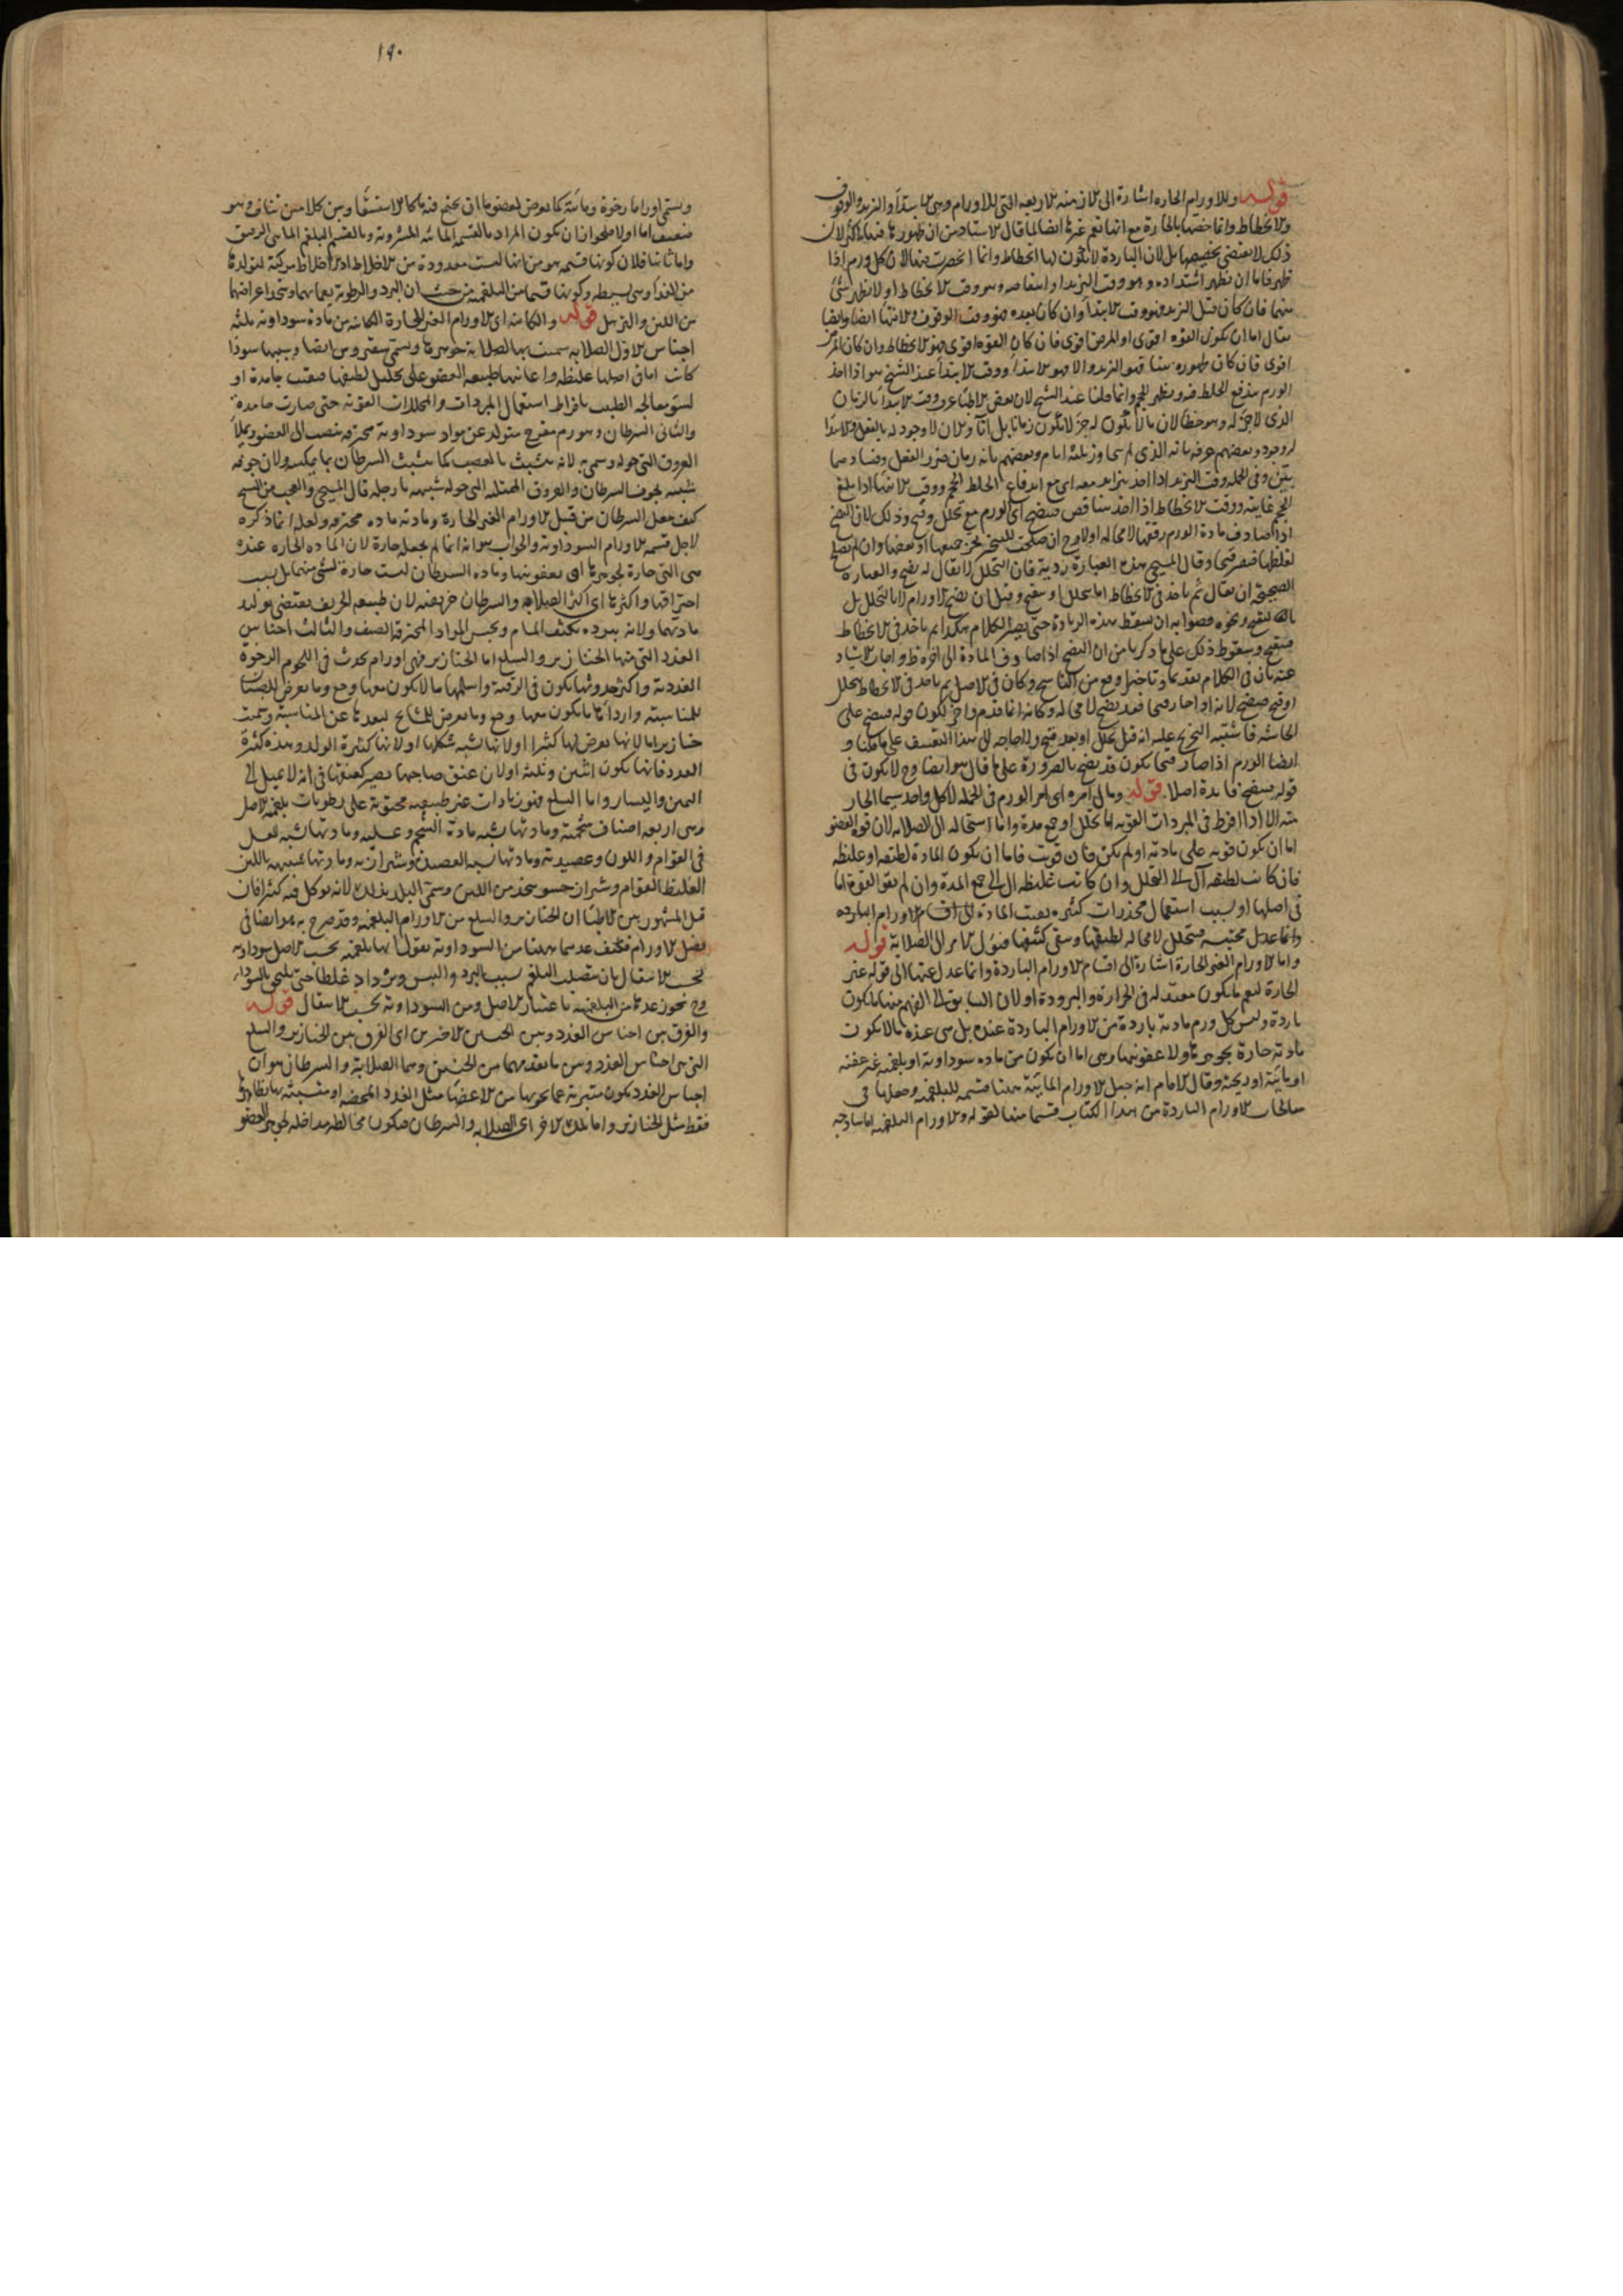 قوله وللاورام الحاره اشارة الى الازمنه الاربعه التى للاورام وهى الابتدا والتزيد والوقوف
والانحطاط وانما خصها بالحارة مع انها تعم غيرها ايضا لما قال الاستاد من ان ظهورها فيها اكثر لان
ذلك لا يقتضى تخصيصها بل لان الباردة لا يكون لها انحطاط وانما انحصرت فيها لان كل ورم اذا
ظهر فاما ان يظهر اشتداده وهو وقت التزيد او انتقاصه وهو وقت الانحطاط او لا يظهر شئ
منهما فان كان قبل التزيد فهو وقت الابتدا وان كان بعده فهو وقت الوقوف الانتها ايضا وايضا
يقال اما ان يكون القوه اقوى او المرض اقوى فان كان القوه اقوى فهو الانحطاط وان كان المرض
اقوى فان كان ظهوره بينا فهو التزيد والا فهو الابتدا ووقت الابتدا عند الشيخ هو اذا اخذ
الورم يندفع الخلط فيه ويظهر الحجم وانما قلنا عند الشيخ لان بعض الاطبا عرف وقت الابتدا بالزمان
الذى لا جزء له وهو خطا لان ما لا يكون له جزء لا يكون زمانا بل آنا ولان لا وجود له بالفعل والابتدا
له وجود وبعضهم عرفه بانه الذى لم يتجاوز ثلثه ايام وبعضهم بانه زمان ضرر الفعل وفسادهما
بين وفى الجمله وقت التزيد اذا اخذ يتزايد معه اى مع اندفاع الخلط الحجم ووقت الانتها اذا بلغ
الحجم غايته ووقت الانحطاط اذا اخذ يتناقص فينضج اى الورم مع تحلل وقيح وذلك لان النضج
اذا صادف مادة الورم رققها لا محاله اولا وح ان صلحت للتبخر تبخر جميعها او بعضها وان لم يصلح
لغلظها فتصير قيحا وقال المسيحى هذه العبارة ردية فان التحلل لا يقال له نضج والعبارة
الصحيحة ان يقال ثم ياخذ فى الانحطاط اما يتحلل او يتقيح وقيل ان نضج الاورام لا بالتحلل بل
بالتقيح ونحوه فصوابه ان يسقط هذه الزيادة حتى يصير الكلام هكذا ثم ياخذ فى الانحطاط
فيتقيح وسقوط ذلك على ما ذكرنا من ان النضج اذا صادف المادة الى اخره ظ واجاب الاستاد
عنه بان فى الكلام تقديما وتاخيرا وقع من الناسخ وكان فى الاصل ثم ياخذ فى الانحطاط بتحلل
او قيح فينضج لانه اذا صار قيحا فقد نضج لا محاله وكانه انما قدم واخر لكون قوله فينضج على
الحاشيه فاشتبه التخريج عليه انه قبل تحلل او بعد قيح ولا حاجه الى هذا التعسف على ما قلنا و
ايضا الورم اذا صار قيحا يكون قد نضج بالضرورة على ما قال هو ايضا وح لا يكون فى
قوله فينضج فايدة اصلا قوله ومال امره اى امر الورم فى الجمله لا كل واحد سيما الحار
منه الا اذا افرط فى المبردات القويه اما تحلل او جمع مدة واما استحاله الى الصلابه لان قوه العضو
اما ان يكون قويه على مادته او لم يكن فان قويت فاما ان يكون المادة لطيفه او غليظه
فان كانت لطيفه آل الى التحلل وان كانت غليظه ال الى جمع المدة وان لم يقو القوة اما
فى اصلها او بسبب استعمال مخدرات كثيره بقيت المادة الى اقسام الاورام البارده
وانما عدل محتبسه فيتحلل لا محاله لطيفها ويبقى كثيفها فيؤل الامر الى الصلابة قوله
واما الاورام الغير الحارة اشارة الى اقسام الاورام الباردة وانما عدل عنها الى قوله غير
الحارة ليعم ما يكون معتدله فى الحرارة والبرودة او لان السابق الى الفهم منها ما يكون
باردة وليس كل ورم مادته باردة من الاورام الباردة عنده بل هى عنده ما لا يكون
مادته حارة بجوهرها ولا عفونتها وهى اما ان يكون من ماده سوداويه او بلغميه غير عفنه
او مائية او ريحية وقال الامام انه جعل الاورام المائية هاهنا قسيمه للبلغميه وجعلها فى
معالجات الاورام الباردة من هذا الكتاب قسما منها لقوله والاورام البلغميه اما ساذجه
١٩٠
ويسمى اوراما رخوة ومائية كما يعرض لعضو ما ان يجتمع فيه ماء كالاستسقا وبين كلاميه تناف وهو
ضعيف اما اولا فلجواز ان يكون المراد بالقسم المائيه المشروبة وبالقسم البلغم المائى الرقيق
واما ثانيا فلان كونها قسيمه هو من انها ليست معدودة من الاخلاط اذ الاخلاط مركبة لتولدها
من الغذا وهى بسيطه وكونها قسما من البلغميه من حيث ان البرد والرطوبة يعمانهما ويتحد اعراضهما
من اللين والترهل قوله والكاينه اى الاورام الغير الحارة الكاينه من مادة سوداويه ثلثه
اجناس الاول الصلابه سميت بها لصلابة جوهرها ويسمى سقيروس ايضا وسببها سودا
كانت اما فى اصلها غليظه واعانتها طبيعه العضو على تحليل لطيفها فبقيت جامدة او
لسوء معالجه الطبيب بافراط استعمال المبردات والمحللات القويه حتى صارت جامدة
والثانى السرطان وهو ورم متقرح متولد عن مواد سوداوية محترقه تنصب الى العضو وتملا
العروق التى حوله وسمى به لانه يتشبث بالعصب كما يتشبث السرطان بما يمسكه ولان جوفه
شبيه بجوف السرطان والعروق الممتلئه التى حوله شبيهه بارجله قال المسيحى والعجب من الشيخ
كيف جعل السرطان من قبيل الاورام الغير الحارة ومادته ماده محترقه ولعله انما ذكره
لاجل قسمه الاورام السوداوية والجواب هو انه انما لم يجعله حارة لان الماده الحاره عنده
هى التى حارة بجوهرها او بعفونتها وماده السرطان ليست حارة لشئ منهما بل بسبب
احتراقها واكثرها اى اكثر الصلابه والسرطان خريفيه لان طبيعه الخريف يقتضى توليد
مادتهما ولانه ببرده يكثف المسام ويحبس المواد المحترقة بالصيف والثالث اجناس
الغدد التى منها الخنازير والسلع اما الخنازير فهى اورام يحدث فى اللحوم الرخوة
الغددية واكثر حدوثها يكون فى الرقبة واسلمها ما لا يكون معها وجع وما يعرض للصبيان
للمناسبة واردأها ما يكون معها وجع وما يعرض للمشايخ لبعدها عن المناسبة وسميت
خنازير اما لانها يعرض لها كثيرا او لانها شبه شكلها او لانها كثيرة الولد وهذه كثرة
العدد فانها يكون اثنين وثلثه او لان عنق صاحبها يصير كعنقها فى انه لا يميل الى
اليمين واليسار واما السلع فهى زيادات غير طبيعيه محتوية على رطوبات بلغميه الاصل
وهى اربعه اصناف شحمية ومادتها شبه مادة الشحم وعسليه ومادتها شبه العسل
فى القوام واللون وعصيدية ومادتها يشبه العصيدة وشيرازيه ومادتها شبيهه باللبن
الغليظ القوام وشيراز حسو يتخذ من اللبن وسمى البلد بذلك لانه يوكل فيه كثيرا فان
قيل المشهور بين الاطبا ان الخنازير والسلع من الاورام البلغميه وقد صرح به هو ايضا فى
فصل الاورام فكيف عدهما هاهنا من السوداوية نقول انها بلغميه بحسب الاصل سوداويه
بحسب الانتقال بان يتصلب البلغم بسبب البرد واليبس ويزداد غلظا حتى يلحق بالسودا
وح يجوز عدها من البلغميه باعتبار الاصل ومن السوداوية بحسب الانتقال قوله
والفرق بين اجناس الغدد وبين الجنسين الاخرين اى الفرق بين الخنازير والسلع
التى من اجناس الغدد وبين ما تقدمهما من الجنسين وهما الصلابة والسرطان هو ان
اجناس الغدد يكون متبرية عما يحويها من الاعضا مثل الغدد المحضه او متشبثه بظاهرها
فقط مثل الخنازير واما تلك الاخر اى الصلابه والسرطان فيكون مخالطه مداخله لجوهر العضو